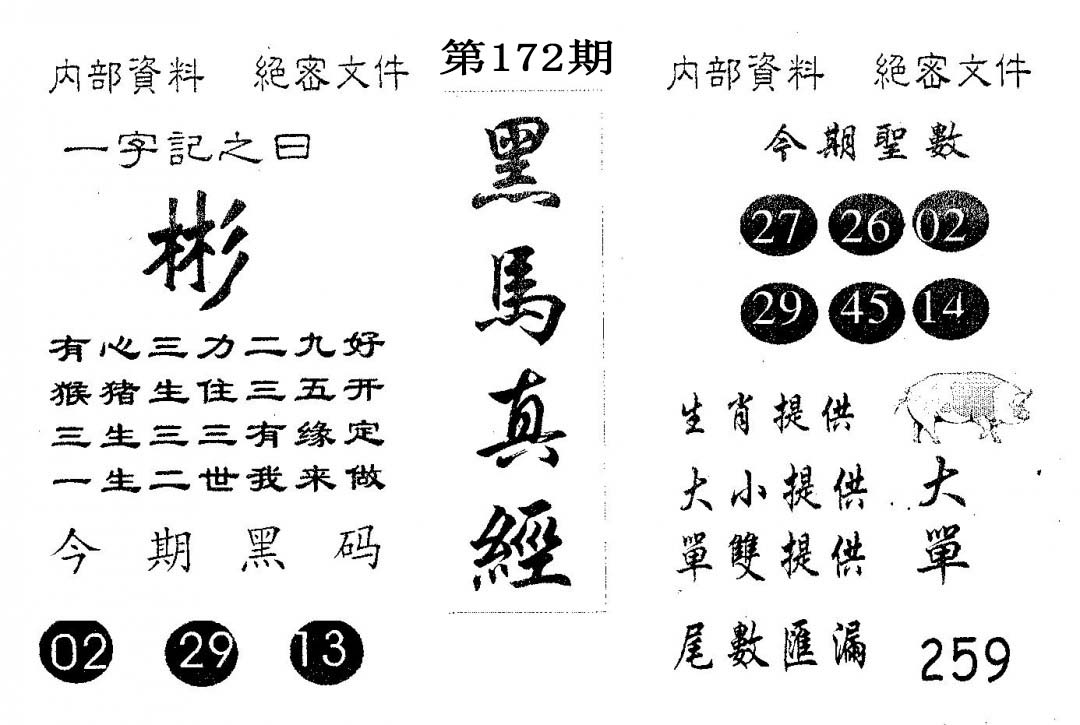 第172期
内部資料 絕密文件
一字記之曰
彬
有心三力二九好
猴猪生住三五开
三生三三有缘定
一生二世我来做
今期黑码
02 29 13
黑馬真經
内部資料 絕密文件
今期聖數
27 26 02
29 45 14
生肖提供
大小提供 大
單雙提供 單
尾數匯漏 259